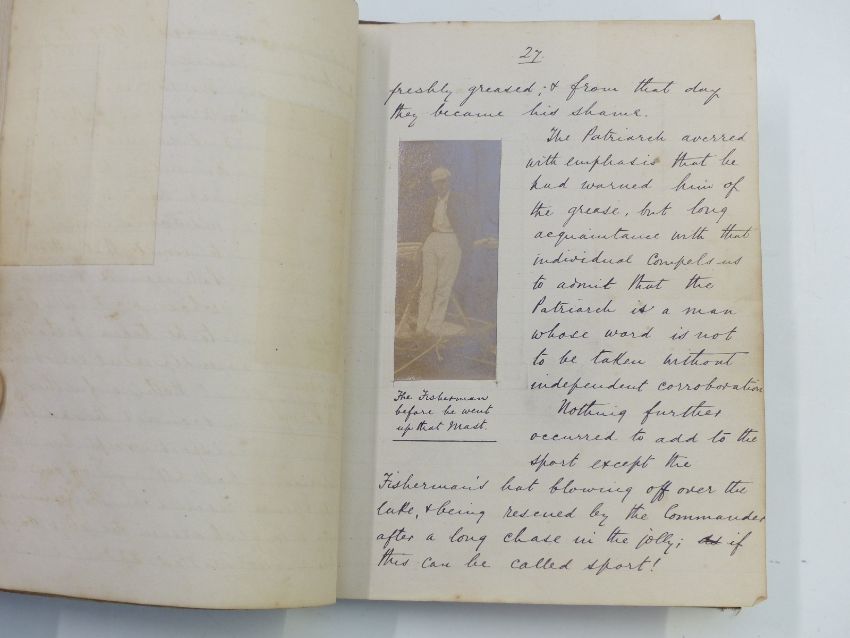 27
freshly greased; & from that day
they became his shame.
The Patriarch averred
with emphasis that he
had warned him of
the grease, but long
acquaintance with that
individual compels us
to admit that the
Patriarch is a man
whose word is not
to be taken without
independent corroboration
Nothing further
occurred to add to the
sport except the
Fisherman's hat blowing off over the
lake, & being rescued by the Commander
after a long chase in the jolly; as if
this can be called sport!
The Fisherman
before he went
up that Mast.